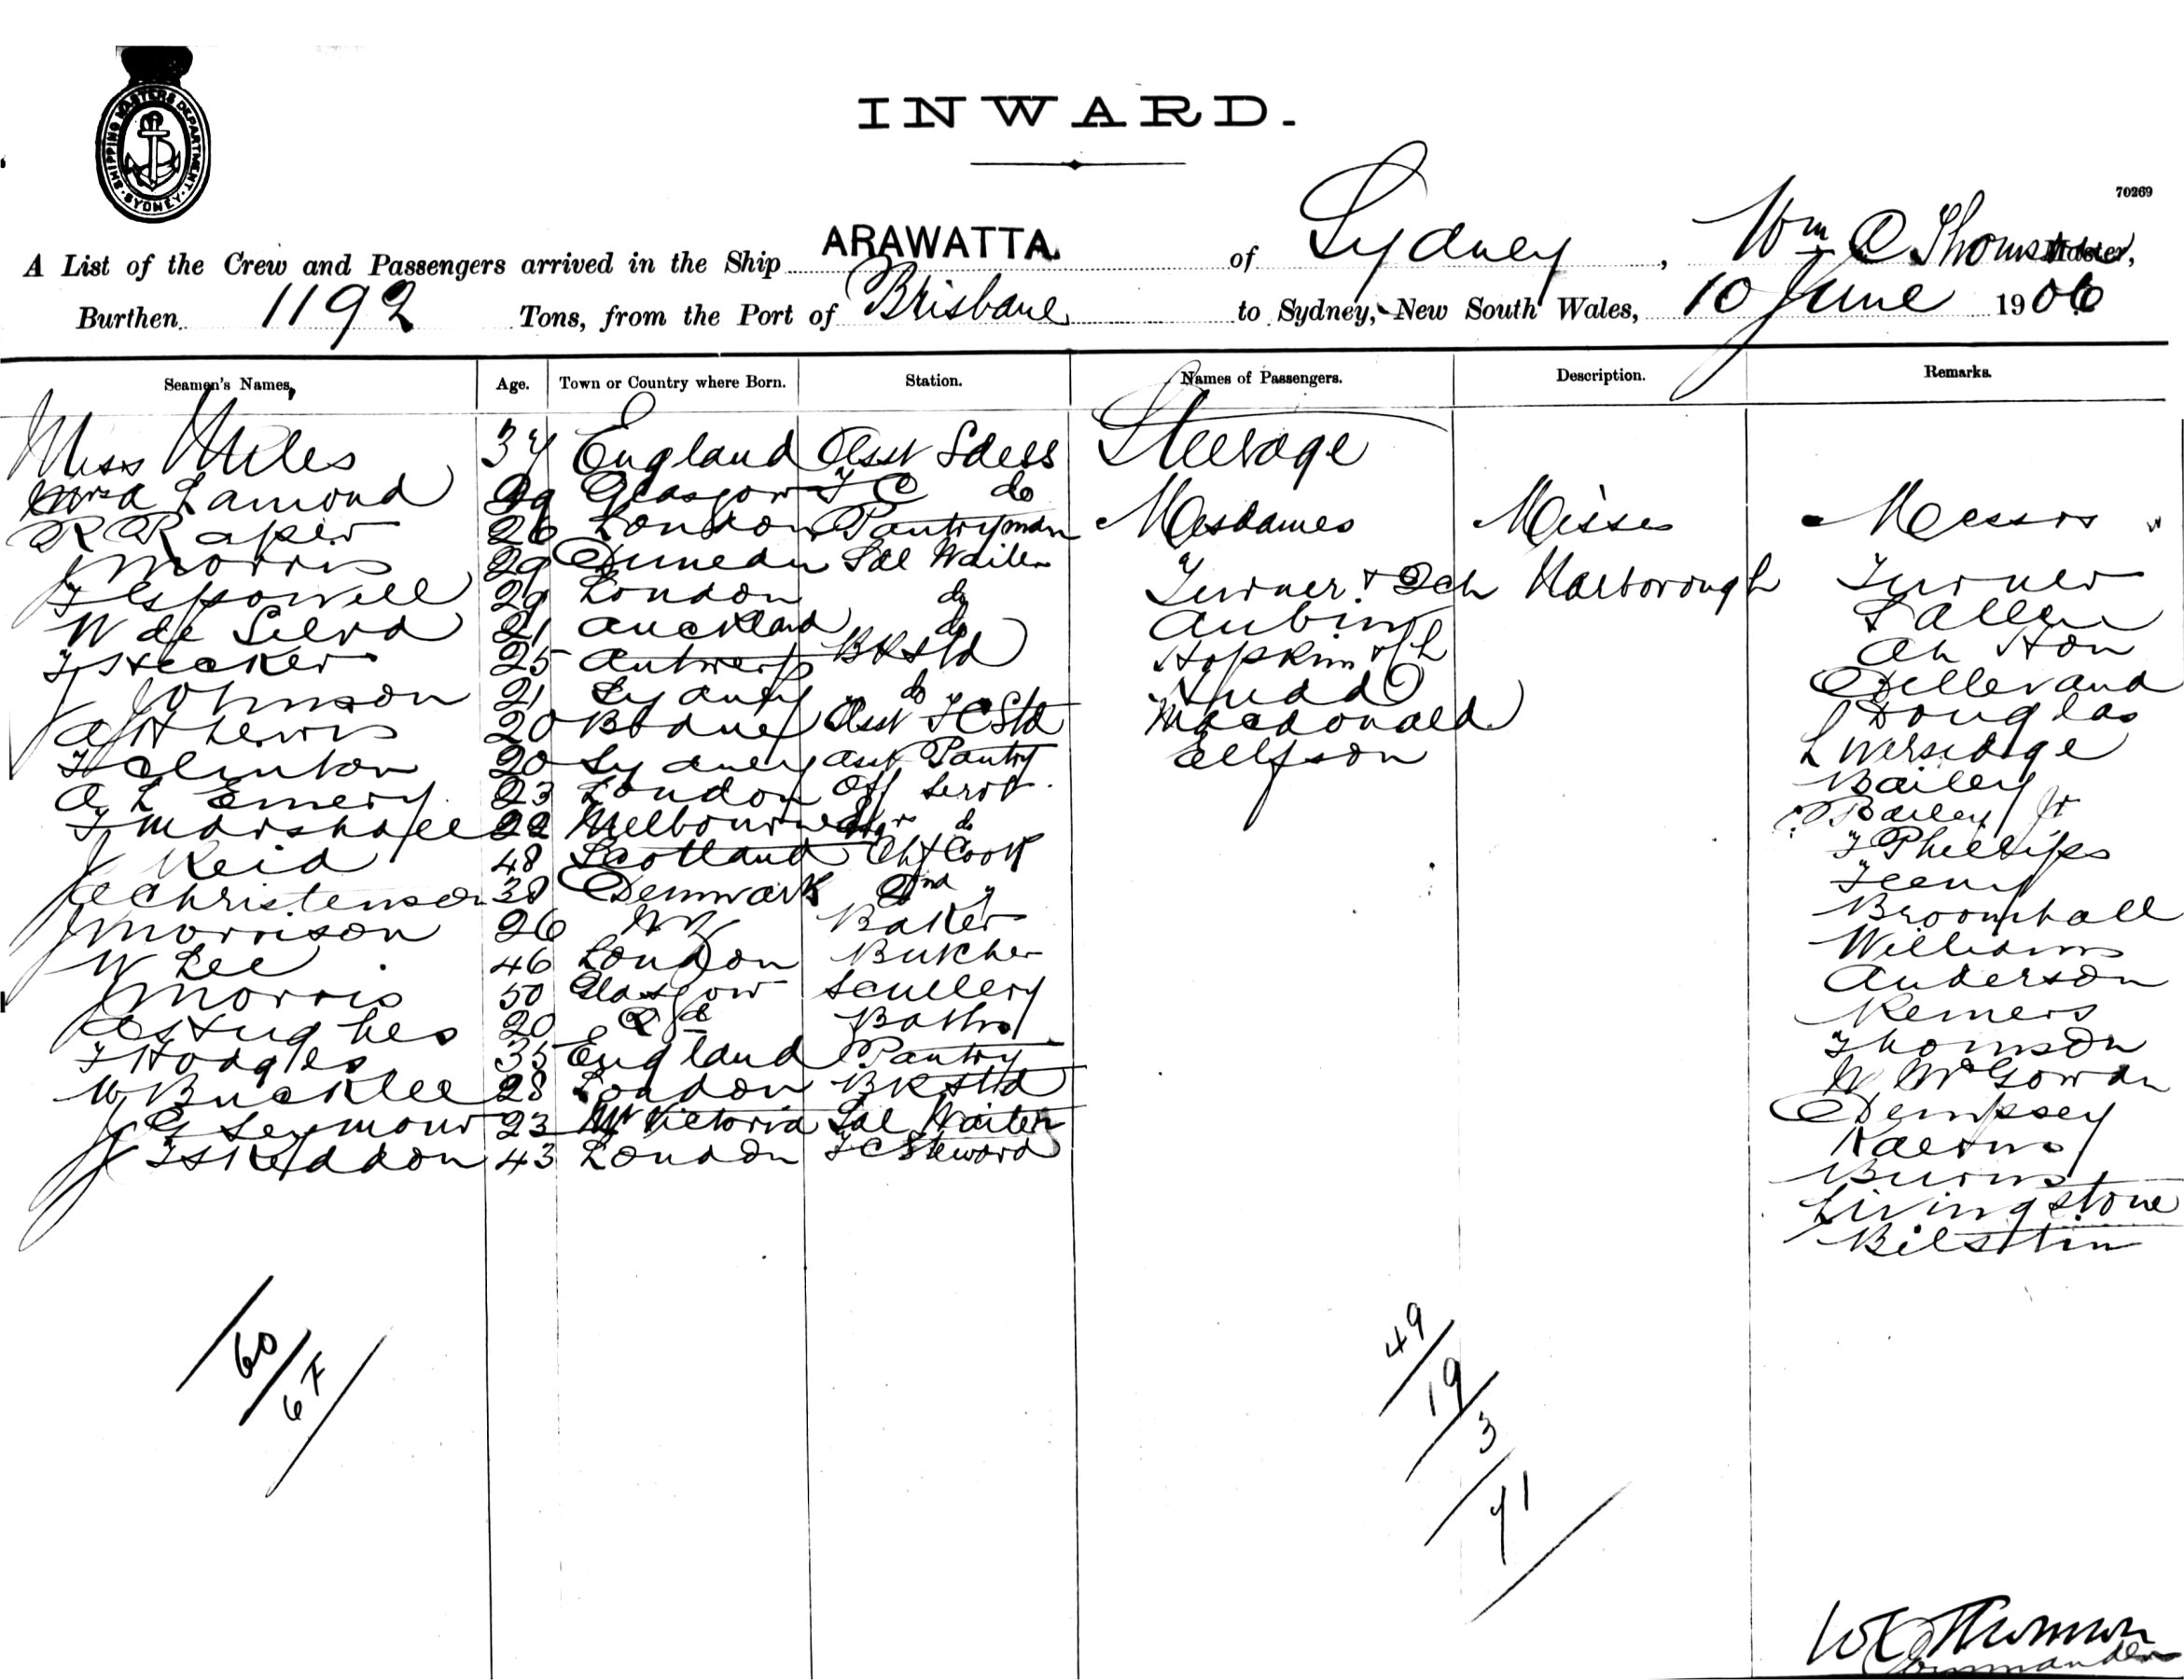 SHIPPING MASTERS DEPARTMENT. SYDNEY
INWARD.
70269
A List of the Crew and Passengers arrived in the Ship ARAWATTA. of Sydney, Wm C Thomson Master,
Burthen 1192 Tons, from the Port of Brisbane to Sydney, New South Wales, 10 June 1906
Seamen's Names, Age. Town or Country where Born. Station. Names of Passengers. Description. Remarks.
Miss Miles 34 England Asst Sdess Steerage
Lamond Glasgow do
R Raper 26 London Pantryman Mesdames Misses Messrs
J Morris 29 Dunedin Sal Waiter
Powell 29 London do Turner & 2ch Marborough Turner
W de Silva 21 Auckland do Aubin Lallen
Hecker 25 Antwerp BKStd Hopkins & Ch Ah Hon
J Johnson 21 Sydney do Judd Dillevand
A H Lewis 20 Sydney Asst FCStd Macdonald Douglas
Clinton 20 Sydney asst Pantry Ellfson Liversidge
A L Emery 23 London Off Servt. Bailey
F Marshall 22 Melbourne do Bailey Jr
J Reid 48 Scotland Chf Cook F Phillips
Christensen 38 Denmark 2nd "
J Morrison 26 NZ Baker Broomhall
W Lee 46 London Butcher Williams
J Morris 50 Glasgow Scullery Anderson
A Hughes 20 Qld Baths Remers
F Hodges 35 England Pantry Thomson
W Bucklee 28 London BKStd W McGowan
J G Seymour 23 Mt Victoria Sal Waiter Dempsey
J Skeddon 43 London FCSteward Kaerns
Burns
Livingstone
Bilstin
60
67
49
19
3
71
W C Thomson
Commander